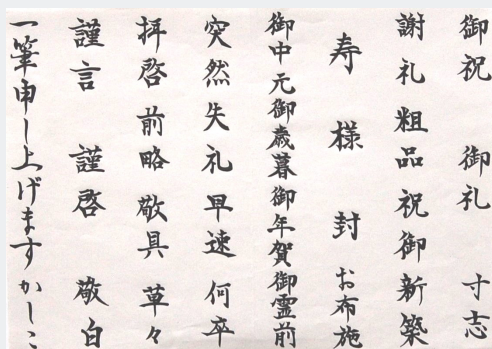 御祝　御礼　寸志
謝礼粗品祝御新築
寿様封お布施
御中元御歳暮御年賀御霊前
突然失礼早速何卒
拝啓前略敬具草々
謹言　謹啓　敬白
一筆申し上げますかしこ